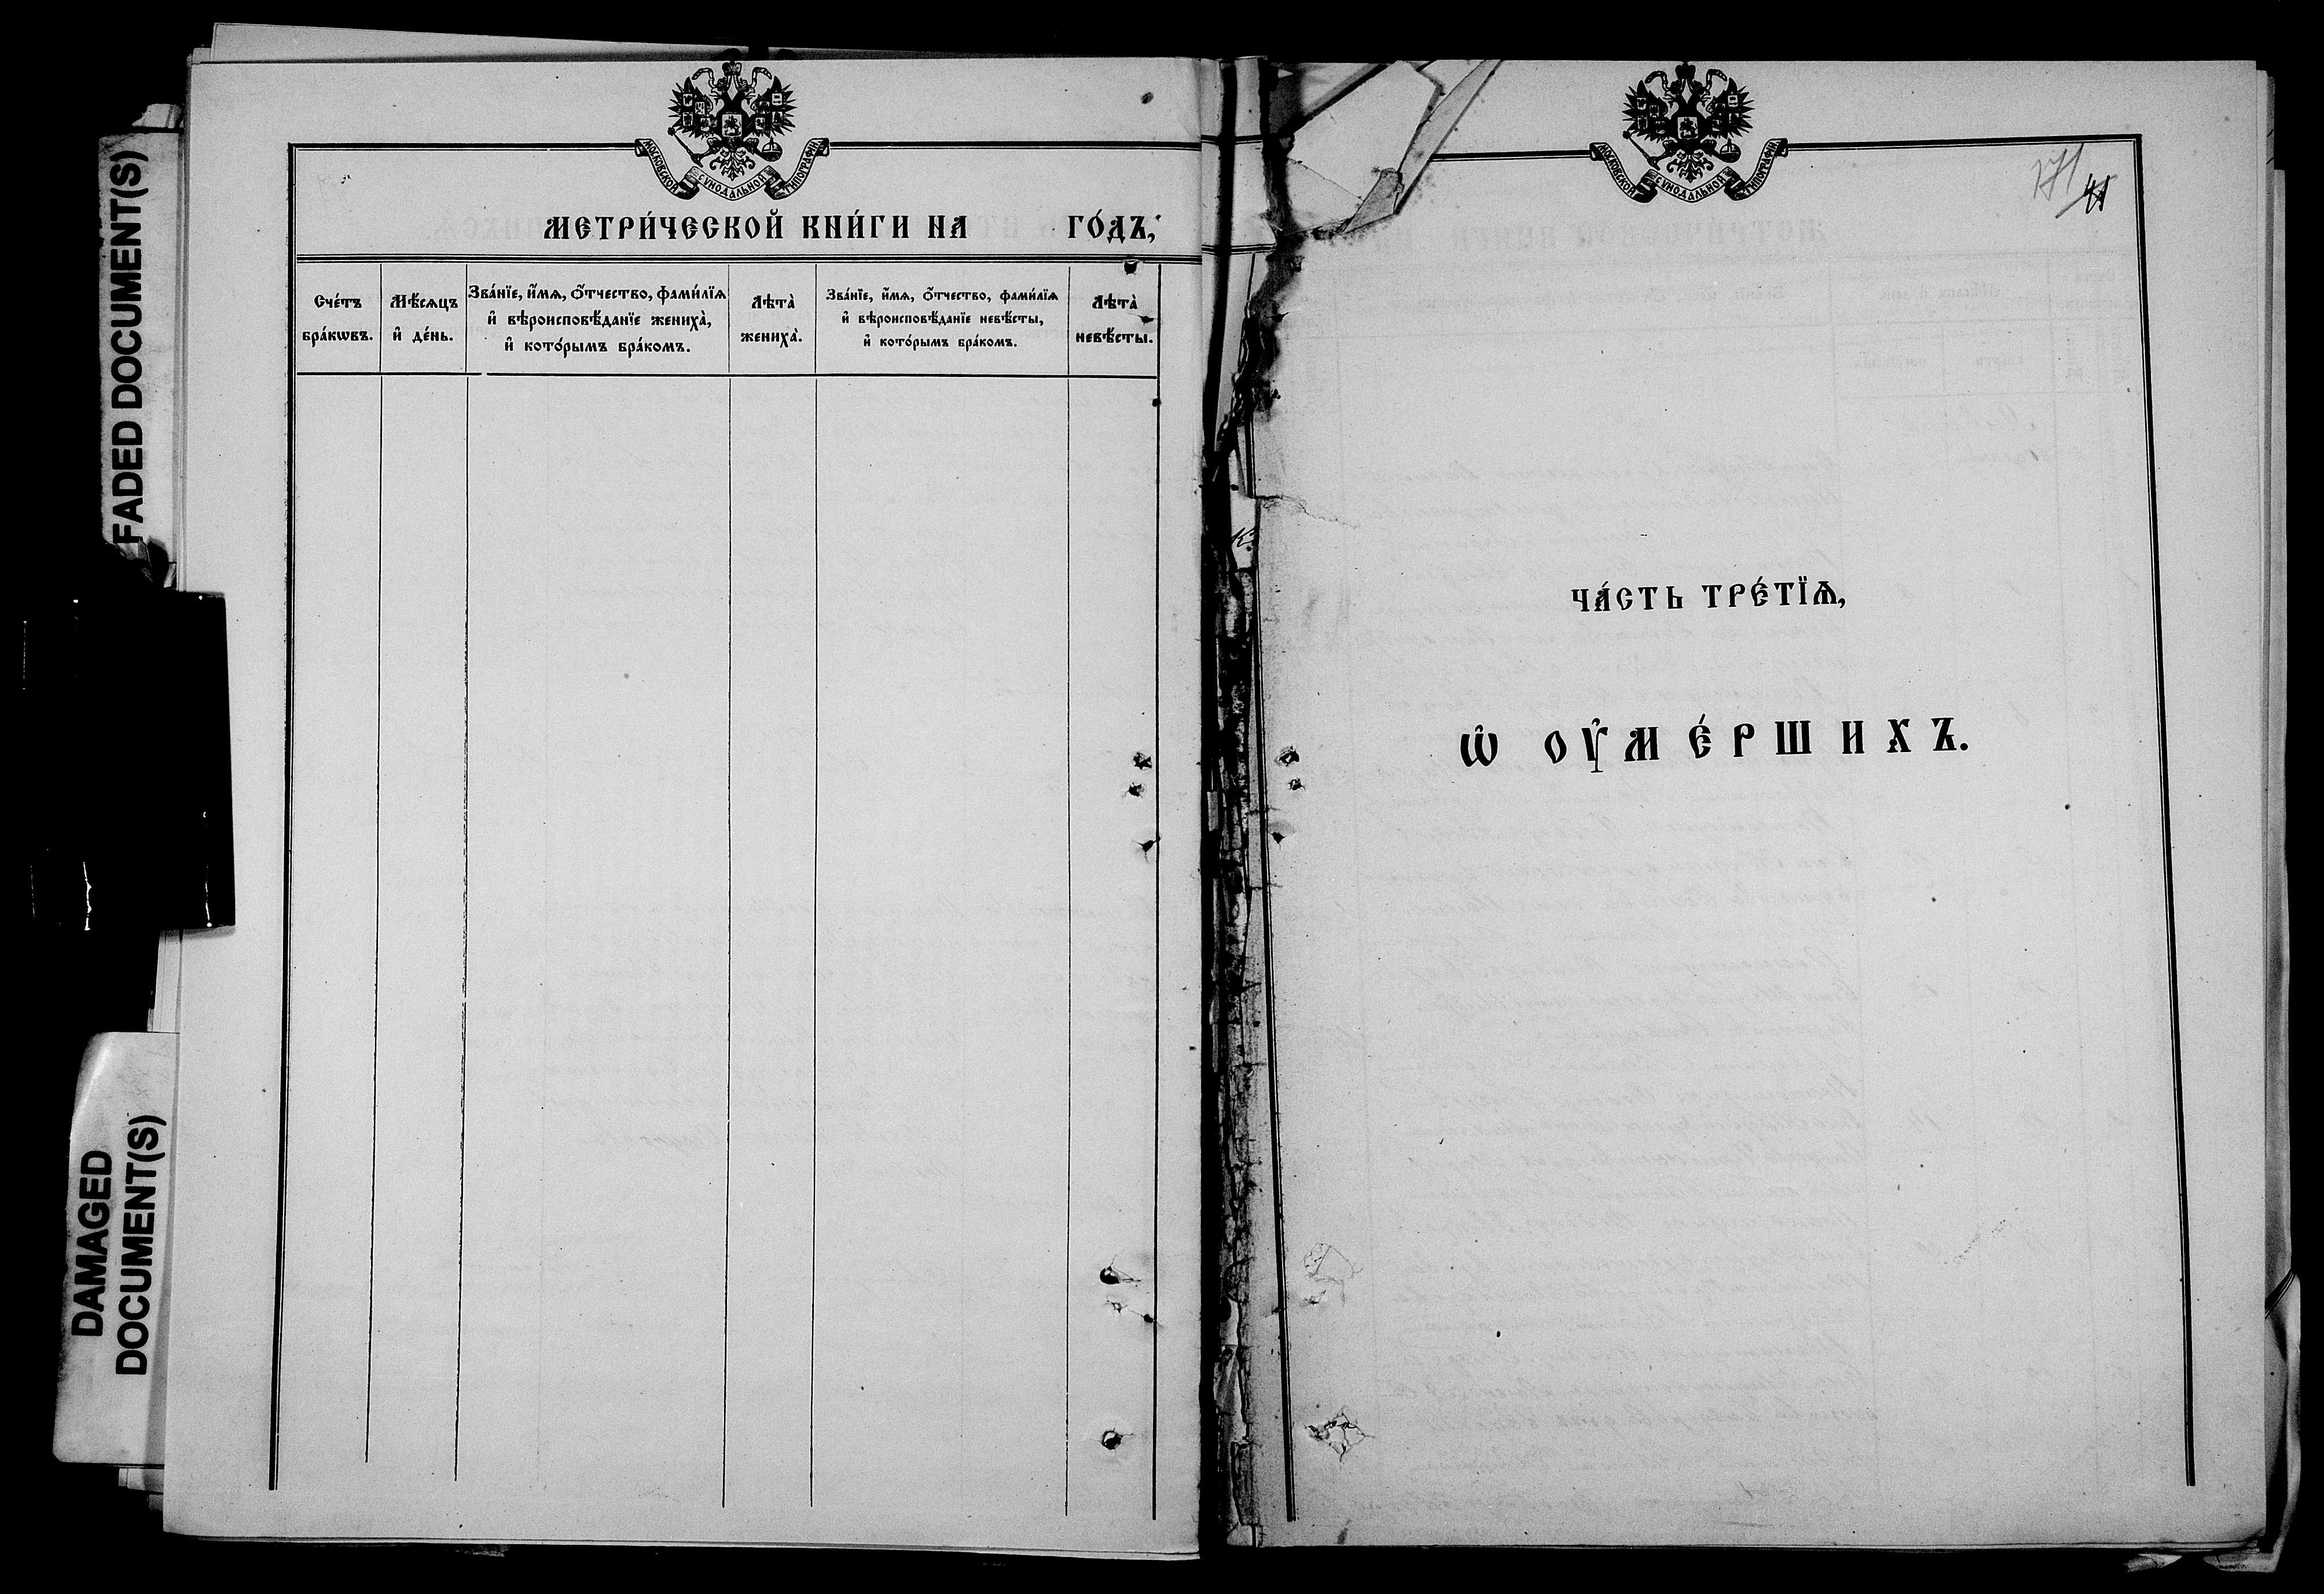 FADED DOCUMENT(S)
DAMAGED
DOCUMENT(S)
МОСКОВСКОЙ СѴНОДАЛЬНОЙ ТИПОГРАФІИ
МЕТРИ́ЧЕСКОЙ КНИ́ГИ НА ГО́ДЪ,
Сче́тъ
бра́кѡвъ.
Мѣ́сѧцъ
и҆ де́нь.
Зва́нїе, и҆́мѧ, ѻ҆́тчество, фами́лїѧ
и҆ вѣроисповѣ́данїе жениха̀,
и҆ кото́рымъ бра́комъ.
Лѣта̀
жениха̀.
Зва́нїе, и҆́мѧ, ѻ҆́тчество, фами́лїѧ
и҆ вѣроисповѣ́данїе невѣ́сты,
и҆ кото́рымъ бра́комъ.
Лѣта̀
невѣ́сты.
МОСКОВСКОЙ СѴНОДАЛЬНОЙ ТИПОГРАФІИ
171
41
ЧА́СТЬ ТРЕ́ТЇѦ,
Ѡ҆ ОУ҆МЕ́РШИХЪ.